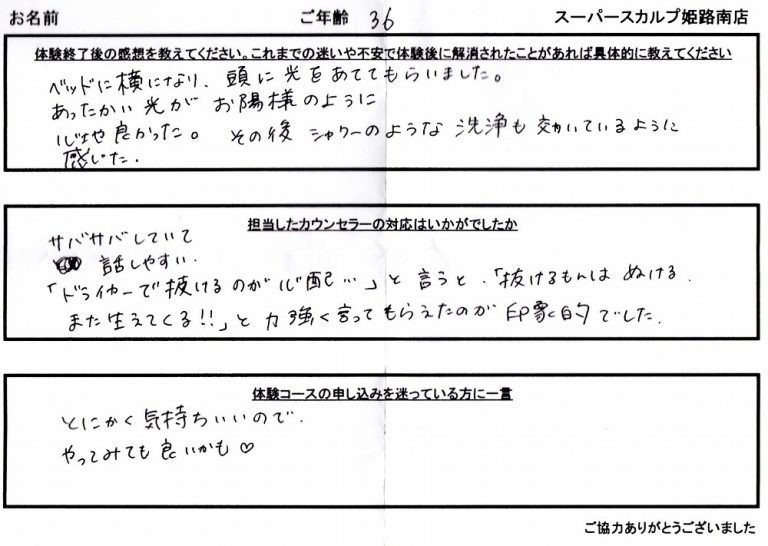 お名前 ご年齢 36 スーパースカルプ姫路南店
体験終了後の感想を教えてください。これまでの迷いや不安で体験後に解消されたことがあれば具体的に教えてください
ベッドに横になり、頭に光をあててもらいました。
あったかい光が お陽様のように
心地や良かった。 その後 シャワーのような 洗浄も 効いているように
感じた.
担当したカウンセラーの対応はいかがでしたか
サバサバしていて
話しやすい.
「ドライヤーで抜けるのが心配…」と言うと、「抜けるもんは ぬける.
また生えてくる!!」と力強く言ってもらえたのが 印象的でした.
体験コースの申し込みを迷っている方に一言
とにかく気持ちいいので.
やってみても良いかも♡
ご協力ありがとうございました